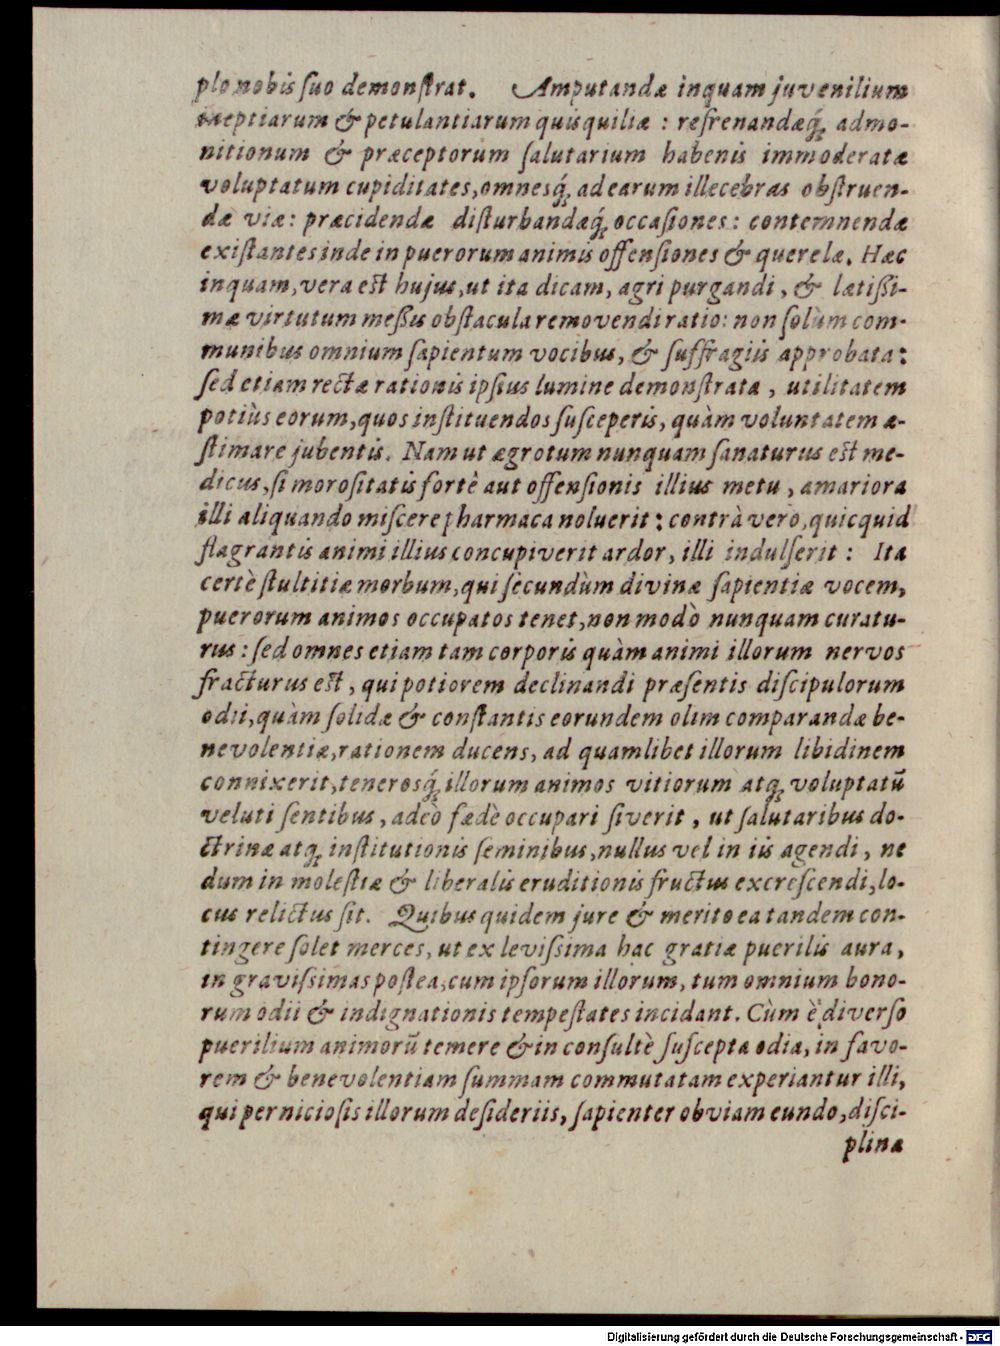 plo nobis ſuo demonſtrat. Amputandæ inquam juvenilium
ineptiarum & petulantiarum quisquiliæ : refrenandæq́; admo-
nitionum & præceptorum ſalutarium habenis immoderatæ
voluptatum cupiditates, omnesq́; ad earum illecebras obſtruen-
dæ viæ: præcidendæ diſturbandæq́; occaſiones: contemnendæ
exiſtantes inde in puerorum animis offenſiones & querelæ. Hæc
inquam, vera eſt hujus, ut ita dicam, agri purgandi, & lætiſsi-
mæ virtutum meſsis obſtacula removendi ratio: non ſolùm com-
munibus omnium ſapientum vocibus, & ſuffragiis approbata:
ſed etiam rectæ rationis ipſius lumine demonſtrata, utilitatem
potiùs eorum, quos inſtituendos ſuſceperis, quàm voluntatem æ-
ſtimare jubentis. Nam ut ægrotum nunquam ſanaturus eſt me-
dicus, ſi moroſitatis fortè aut offenſionis illius metu, amariora
illi aliquando miſcere pharmaca noluerit: contrà vero, quicquid
flagrantis animi illius concupiverit ardor, illi indulſerit : Ita
certè ſtultitiæ morbum, qui ſecundùm divinæ ſapientiæ vocem,
puerorum animos occupatos tenet, non modò nunquam curatu-
rus: ſed omnes etiam tam corporis quàm animi illorum nervos
fracturus eſt, qui potiorem declinandi præſentis diſcipulorum
odii, quàm ſolidæ & conſtantis eorundem olim comparandæ be-
nevolentiæ, rationem ducens, ad quamlibet illorum libidinem
connixerit, tenerosq́; illorum animos vitiorum atq; voluptatū
veluti ſentibus, adeò fædè occupari ſiverit, ut ſalutaribus do-
ctrinæ atq; inſtitutionis ſeminibus, nullus vel in iis agendi, ne
dum in moleſtiæ & liberalis eruditionis fructus excreſcendi, lo-
cus relictus ſit. Quibus quidem jure & merito ea tandem con-
tingere ſolet merces, ut ex leviſsima hac gratiæ puerilis aura,
in graviſsimas poſtea, cum ipſorum illorum, tum omnium bono-
rum odii & indignationis tempeſtates incidant. Cùm è diverſo
puerilium animorū temere & inconſultè ſuſcepta odia, in favo-
rem & benevolentiam ſummam commutatam experiantur illi,
qui pernicioſis illorum deſideriis, ſapienter obviam eundo, diſci-
plinæ
Digitalisierung gefördert durch die Deutsche Forschungsgemeinschaft - DFG